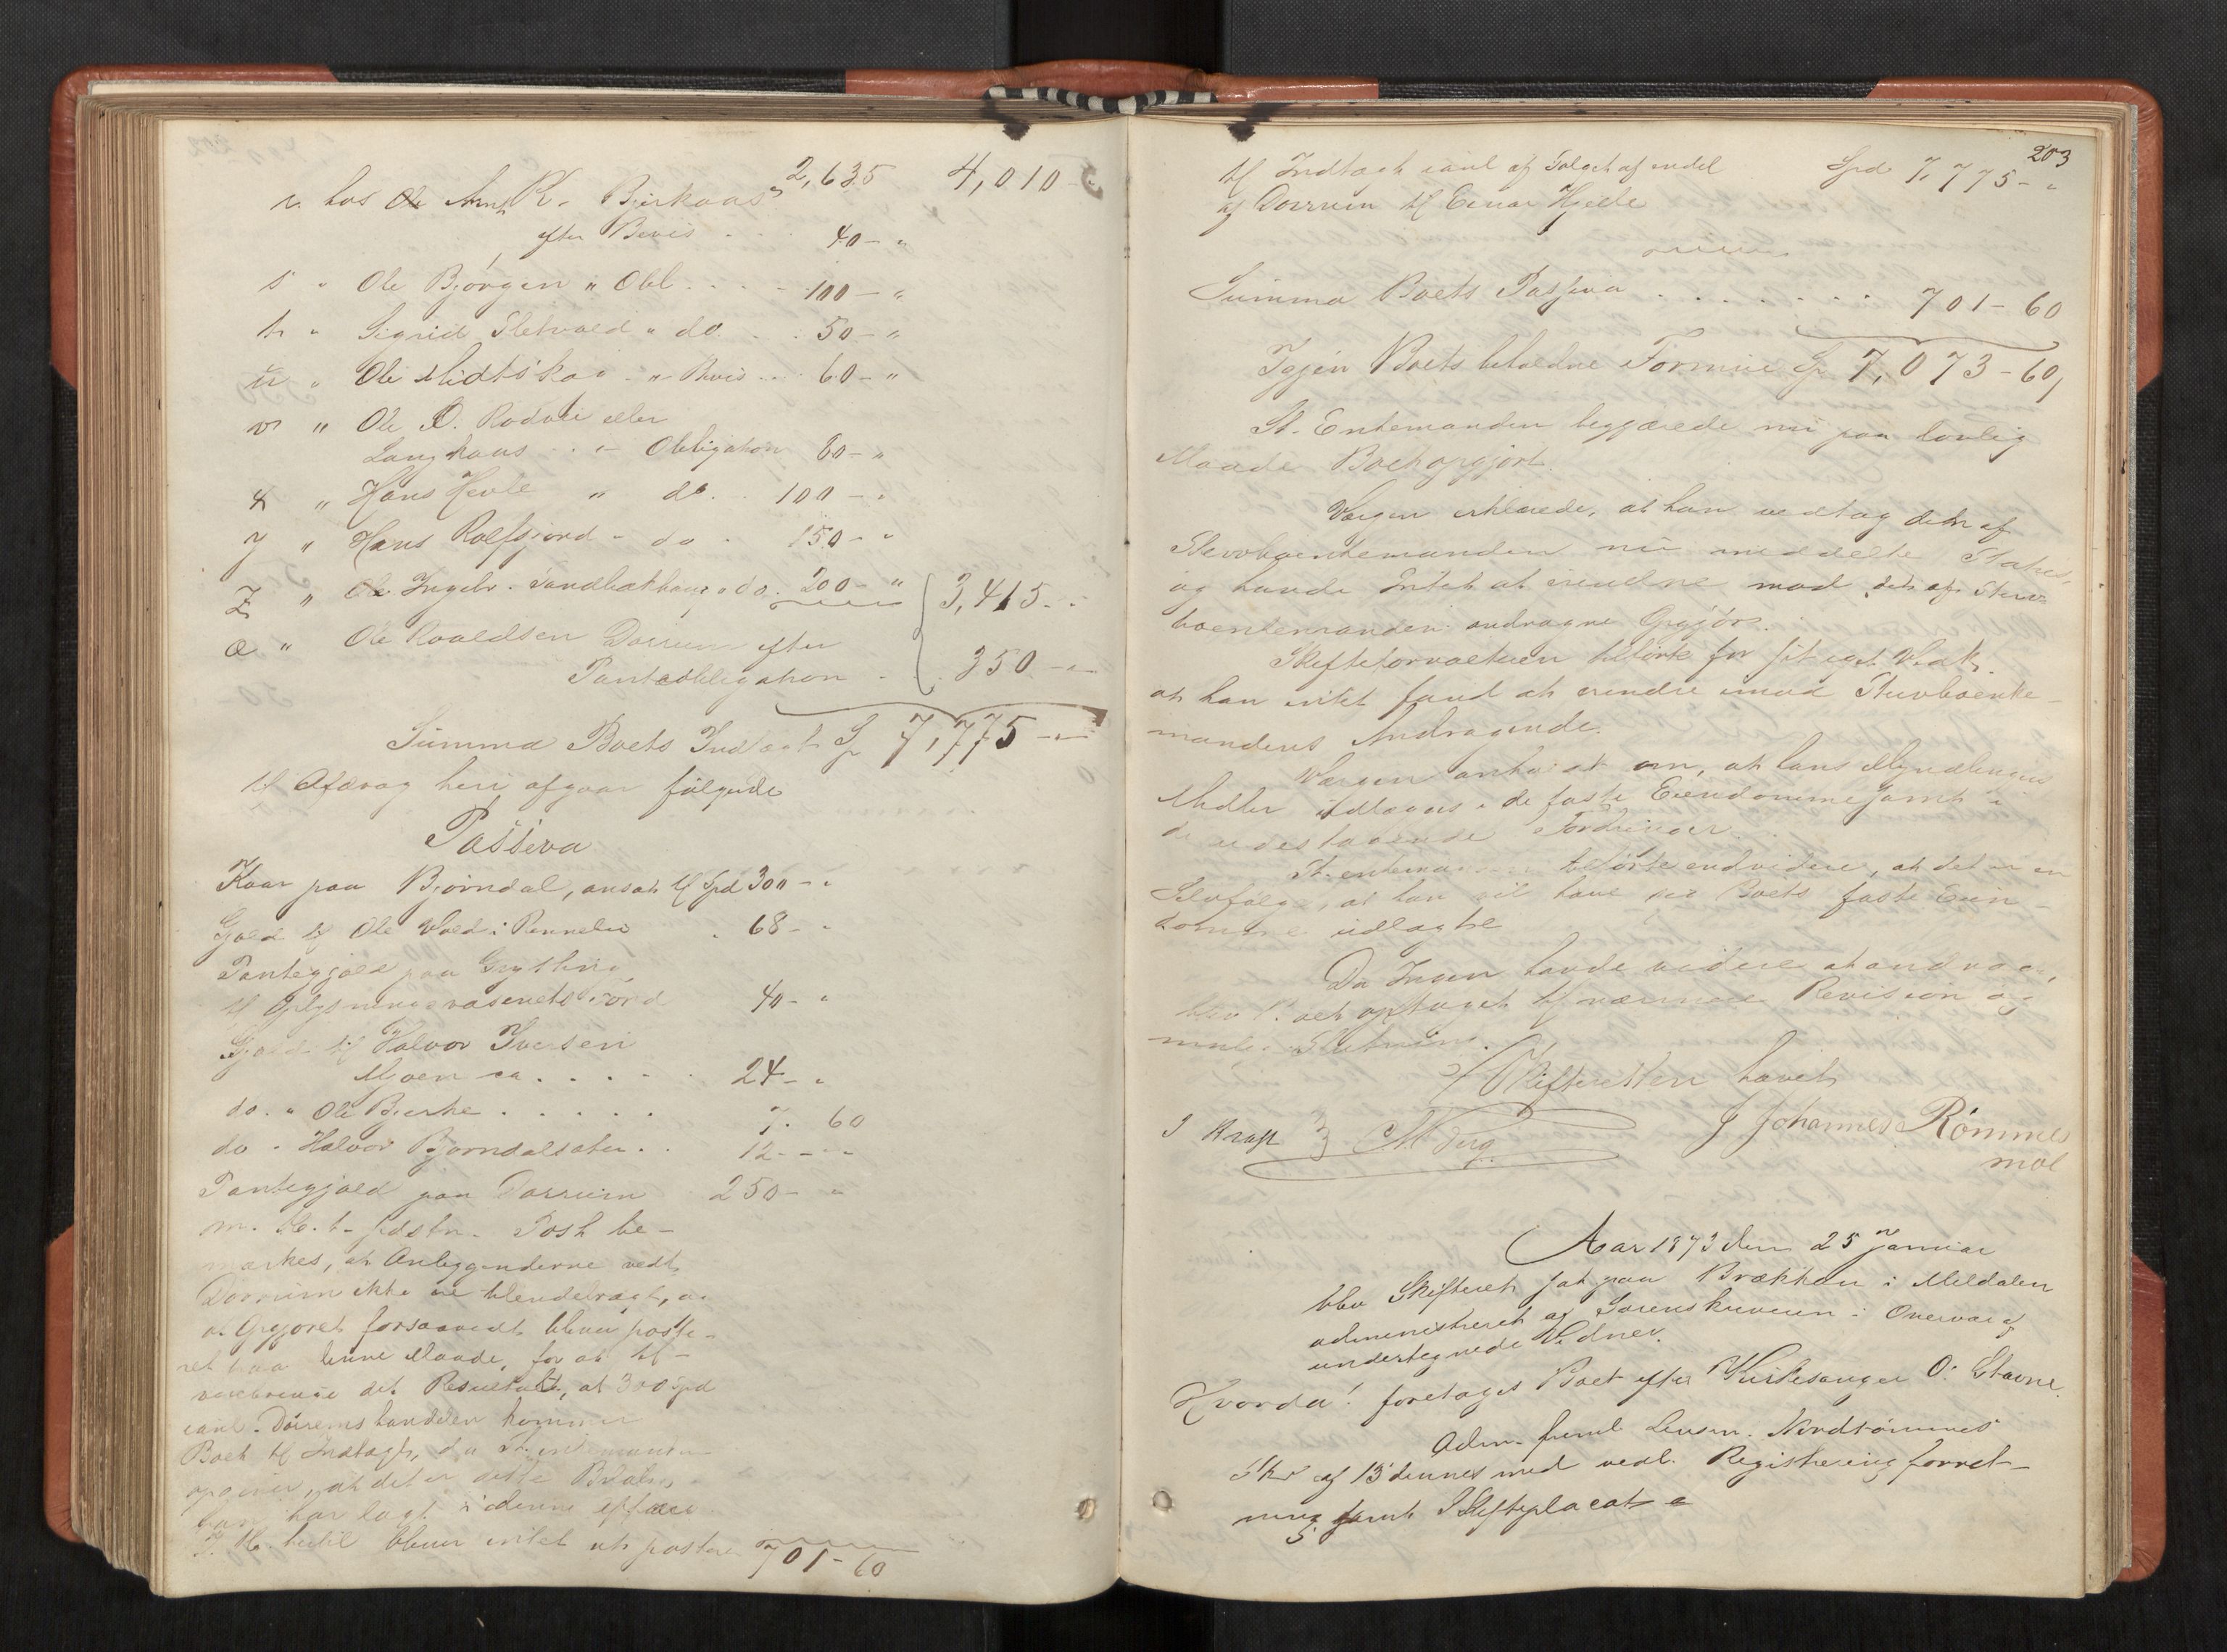 2,635 4,010
r. hos Arnt R. Bjerkaas
efter Bevis . . 40 - "
s " Ole Bjørgen " Obl. . . . 100 - "
t " Sigrid Sletvold " do. . . 50 - "
u " Ole Midtskog " Bevis . . 60 - "
v " Ole O. eller
Langhaas . . " Obligation 80 - "
x " Hans Hevle " do. . 100 - "
y " Hans Rolfsjord " do . 150 - "
z " Ole Ingebr. " do. 200 - " 3,415 - "
æ " Ole Roaldsen Dørrum efter
Pantobligation . 350 - "
Summa Boets Indtægt Sp 7,775 - "
til Afdrag heri afgaar følgende
Passiva
Kaar paa Bjørndal, ansat til Spd 300 - "
Gjæld til Ole Vold i Rennebu . 68 - "
Pantegjæld paa Grytting
til Oplysningsvæsenets Fond 40 - "
Gjæld til Halvor Iversen
Moen ca . . . . . 24 - "
do. " Ole Bjerke . . . . . 7. 60
do " Halvor Bjørndalsæter . . 12 - "
Pantegjæld paa Dørrum 250 - "
m. H. t. sidstn. Post be-
mærkes, at Anliggenderne vedk.
Dørrum ikke ere tilendebragt, og
at Opgjøret forsaavidt bliver poste-
ret paa denne Maade, for at til-
veiebringe det Resultat, at 300 Spd
Dørrums handelen kommer
Boet til Indtægt, da St.enkemanden
opgiver, at det er dette Beløb,
han har lagt i denne
F. H. hertil bliver intet at postere 701 - 60
203
til Indtægt af Salget af endel Spd 7,775 - "
af Dørrum til Einar Hjelle
Summa Boets Passiva . . . . . . . 701 - 60
Igjen Boets beholdne Formue Sp 7,073 - 60,
St. Enkemanden begjærede nu paa lovlig
Maade Boet opgjort.
Værgen erklærede, at han vedtog den af
Stervboenkemanden nu meddelte Status,
og havde Intet at erindre mod det af Sterv-
boenkemanden andragne Opgjør.
Skifteforvalteren tilførte for sit eget Vedk.
at han intet fandt at erindre imod Stervboenke-
mandens Andragende.
Værgen anholdt om, at hans Myndlingers
Midler udlægges i de faste Eiendomme samt i
de udestaaende Fordringer.
St.enkemanden tilførte endvidere, at det er en
Selvfølge, at han vil have Boets faste Eien-
domme udlagte
Da Ingen havde videre at andrage,
blev Boet optaget til nærmere Revision og
mulig Slutning.
Skifteretten hævet
J Kraft M Berg J Johannes Rømmes
mol
Aar 1873 den 25 Januar
blev Skifteret sat paa Brækken i Meldalen
administreret af Sorenskriveren i Overvær af
undertegnede Vidner.
Hvorda! foretages Boet efter Kirkesanger O. Stavne.
Adm. freml. Lensm. Nordtømmes
Skr. af 13 dennes med vedl. Registrering forret-
ning samt Skifteplacat